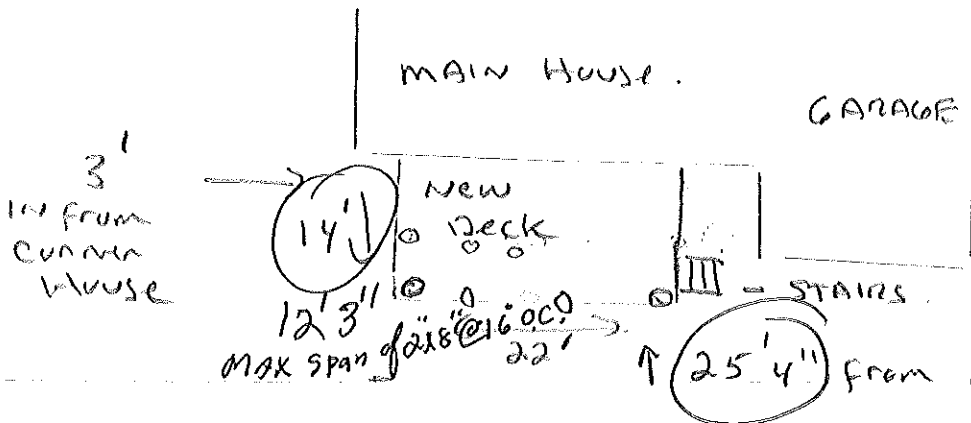 MAIN HOUSE.
GARAGE
3'
IN From
Corner
House
14'
New
Deck
12' 3"
MAX span of 2"x8" @ 16" O.C.
22'
STAIRS.
25' 4" From